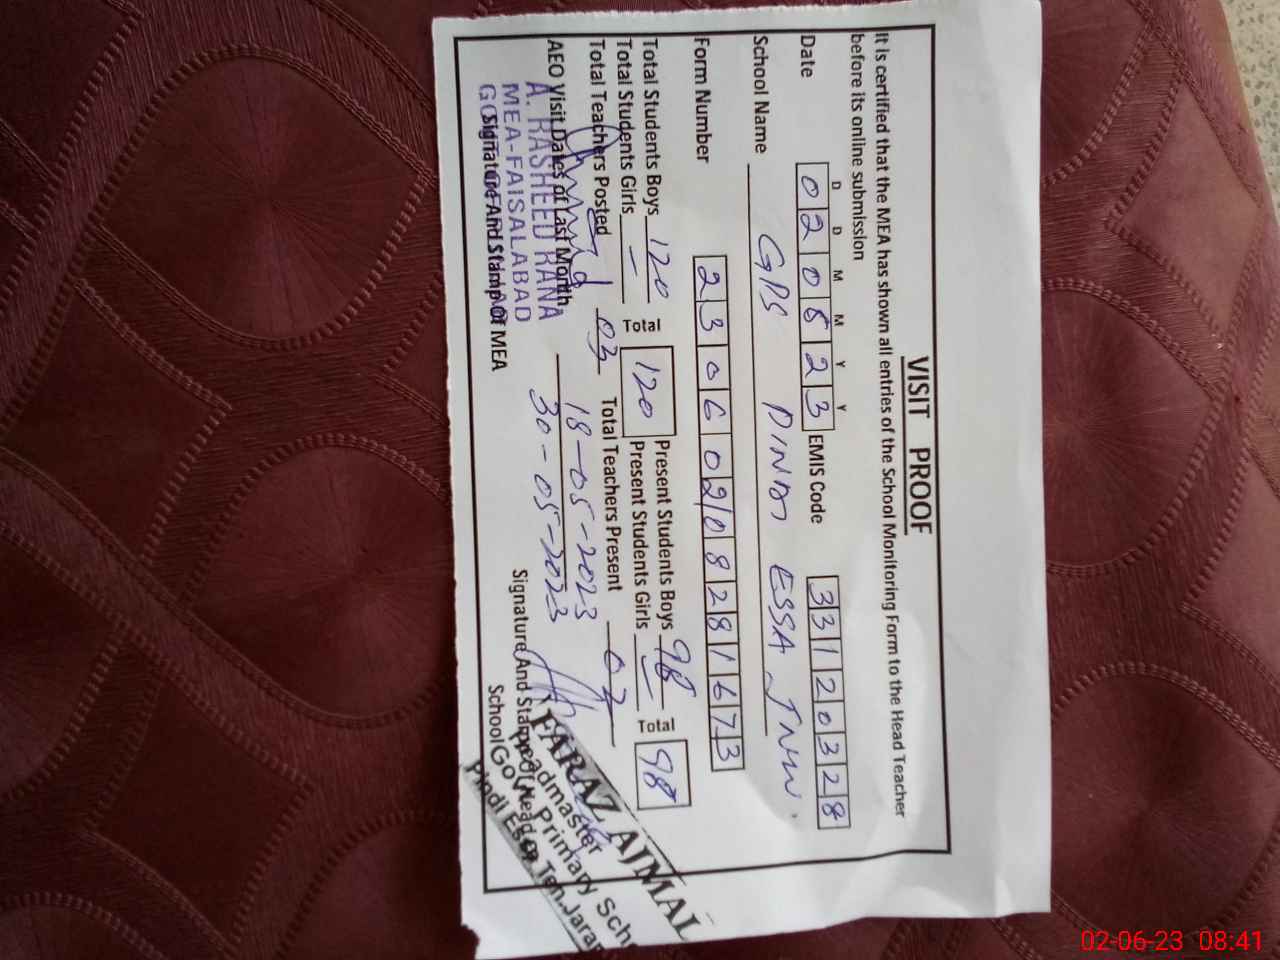 VISIT PROOF
It is certified that the MEA has shown all entries of the School Monitoring Form to the Head Teacher
before its online submission
D D M M Y Y
Date 020623 EMIS Code 33120328
School Name GPS PINDI ESSA
Form Number 23060208281673
Total Students Boys 120 Total 120 Present Students Boys 98 Total 98
Total Students Girls – Present Students Girls –
Total Teachers Posted 03 Total Teachers Present 02
AEO Visit Dates of Last Month 18-05-2023
30-05-2023
A. RASHEED RANA
MEA-FAISALABAD
Signature And Stamp Of MEA
Signature And Stamp of Head of
School
FARAZ AJMAL
Headmaster
Govt. Primary Sch
Pindi Essa Teh.Jaran
02-06-23 08:41